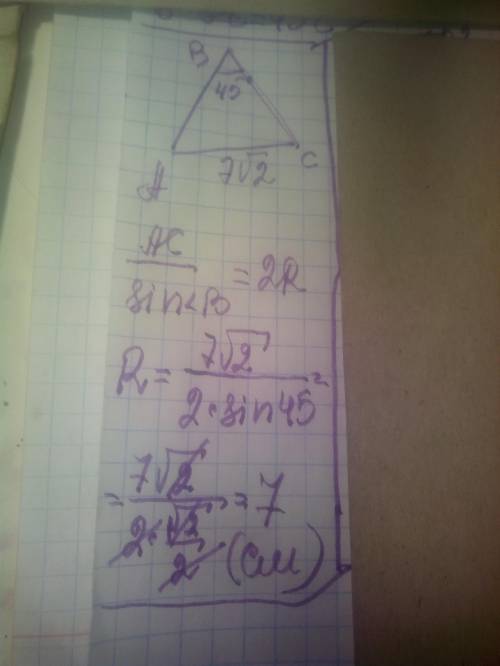 B
45°
A
7√2
C
AC / sin<B = 2R
R = 7√2 / 2·sin45 =
= 7√2 / 2·√2/2 = 7
(см)